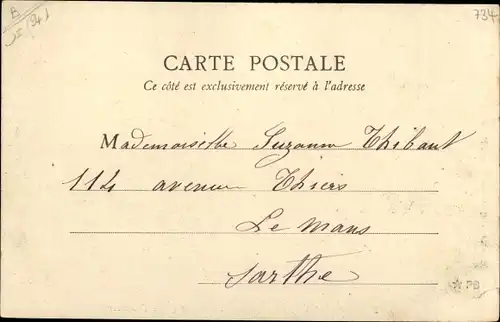 734
CARTE POSTALE
Ce côté est exclusivement réservé à l'adresse
Mademoiselle Suzanne Thibaut
114 avenue Thiers
Le Mans
Sarthe
PB